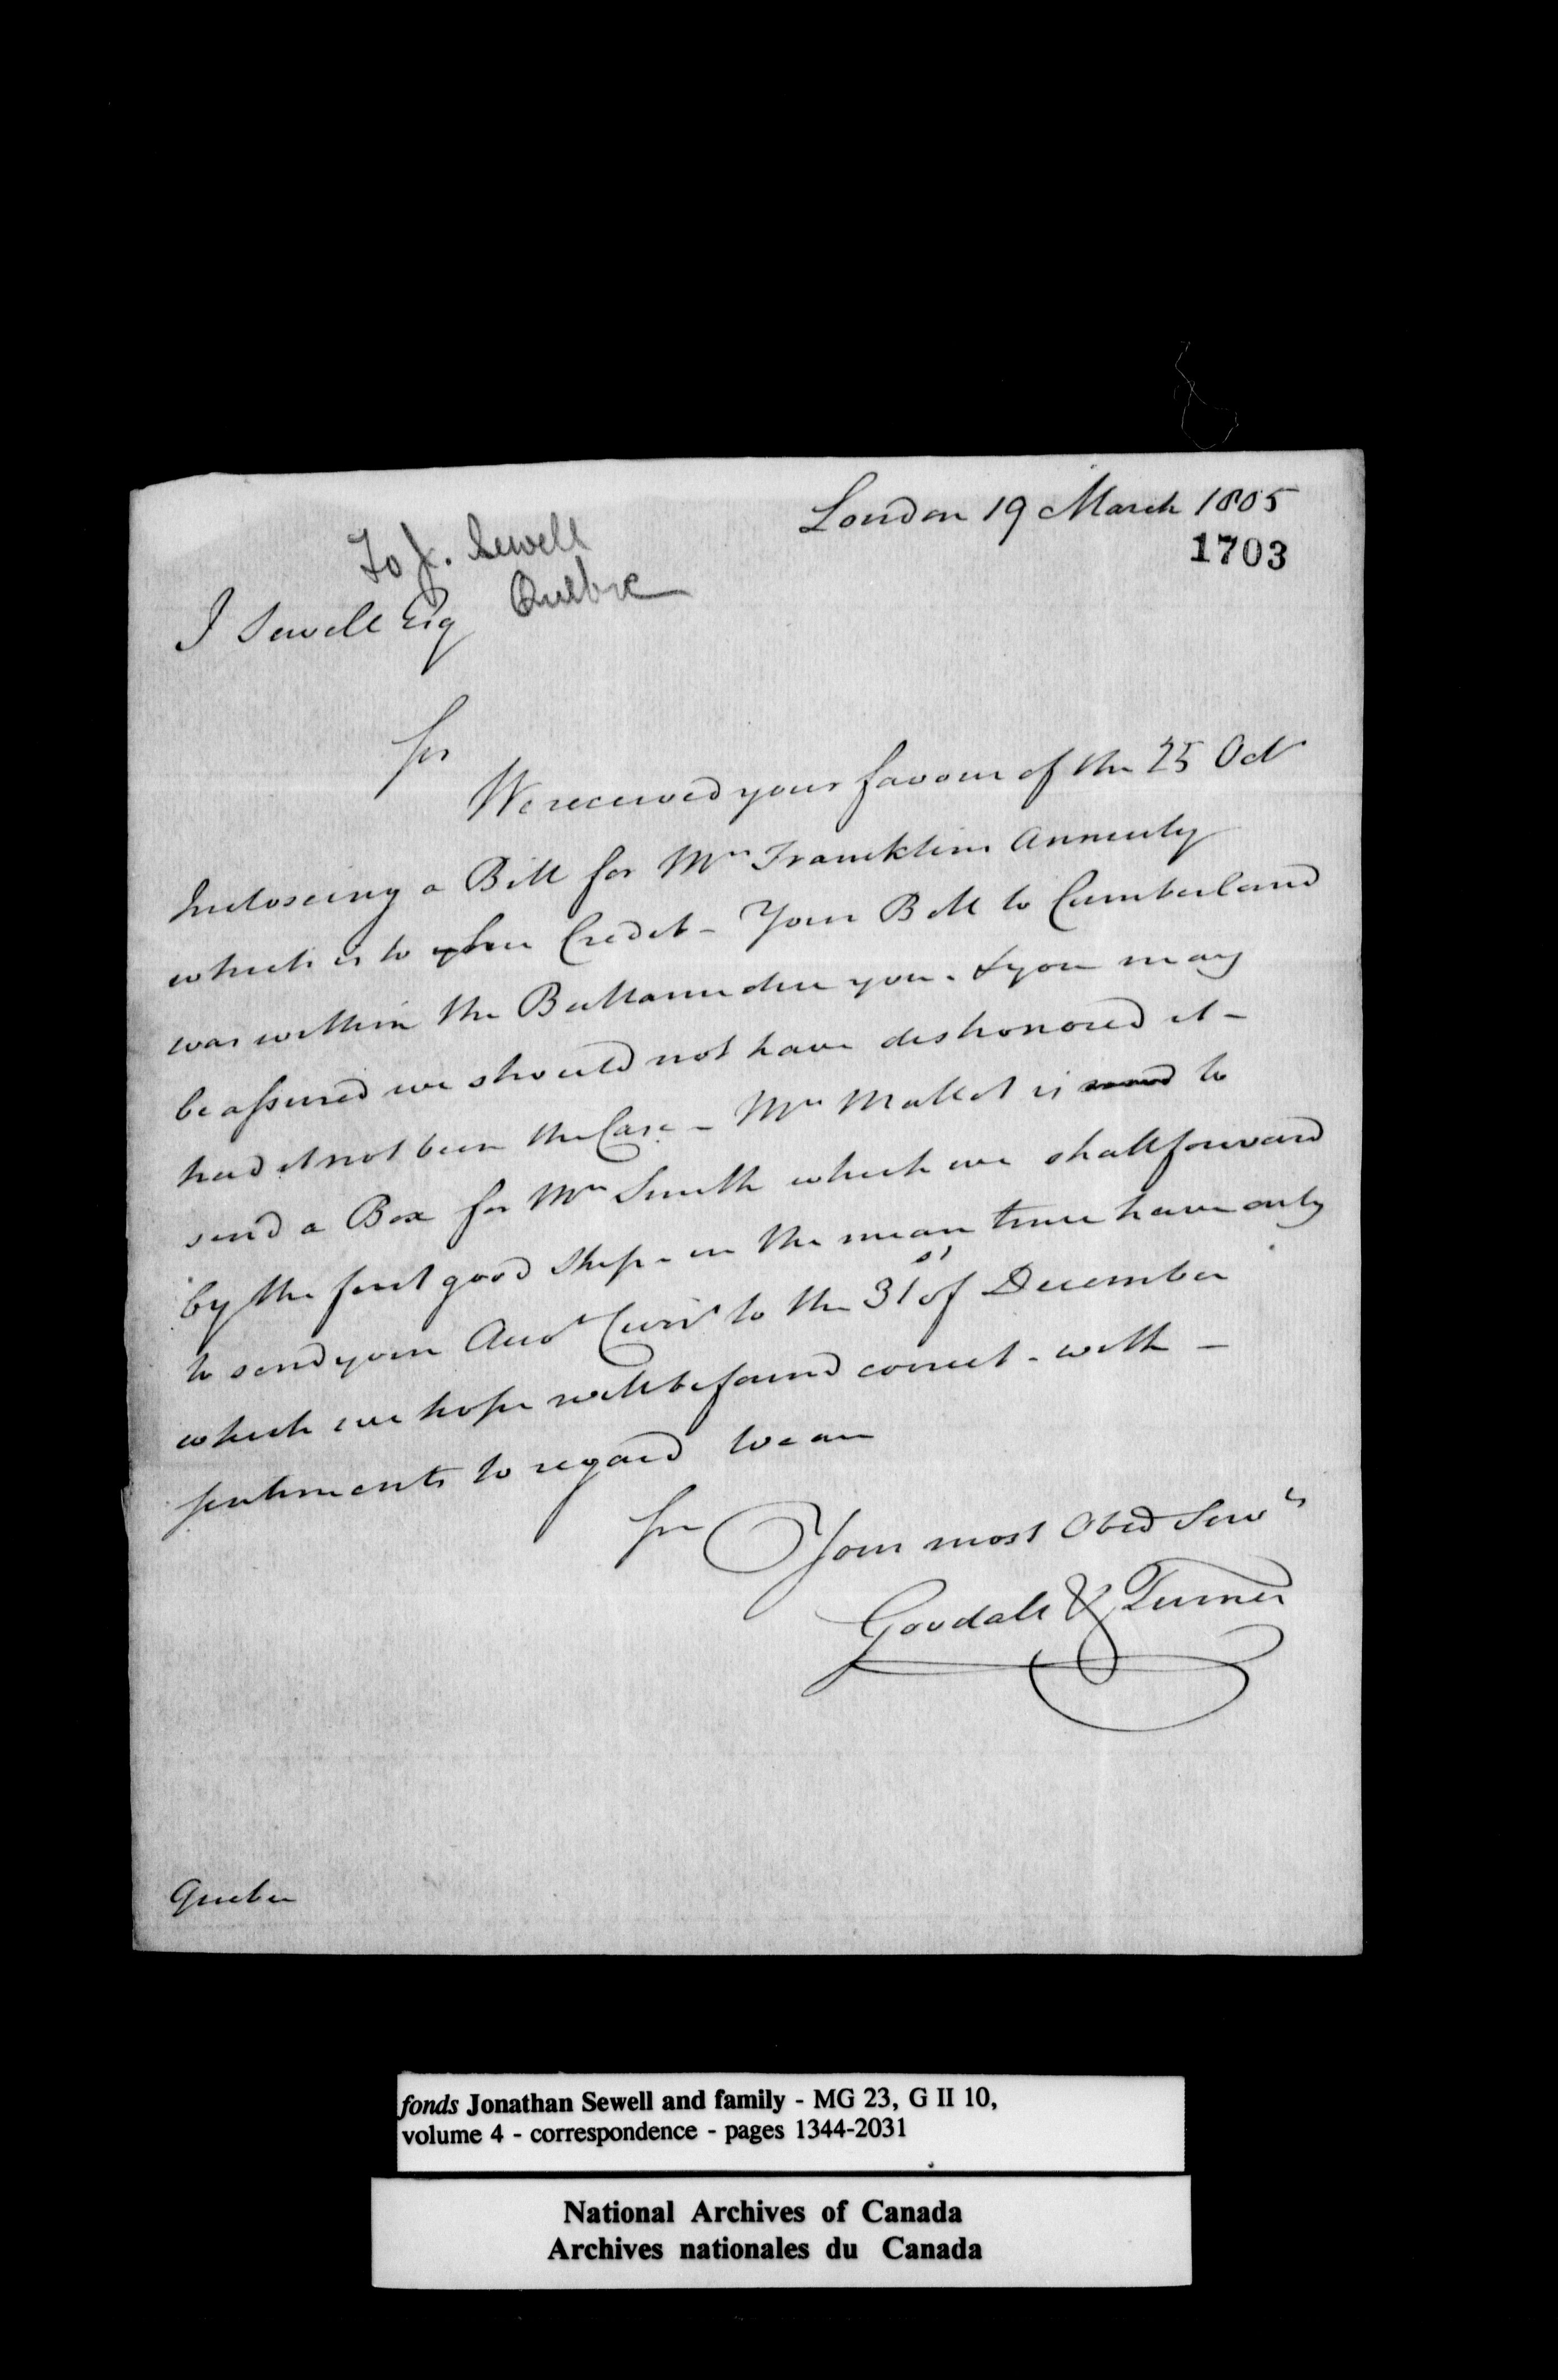 London 19 March 1805
1703
To J. Sewell
Quebec
J Sewell Esq
Sir
We received your favour of the 25 Octr
Incloseing a Bill for Mrs Francklins Annuity
which is to her Credit - Your Bill to Cumberland
was within the Ballance due you. & you may
be assured we should not have dishonored it -
had it not been the Case - Mrs Mallet is to
send a Box for Mrs Smith which we shall forward
by the first good Ship - in the mean time have only
to send your Accot Currt to the 31st of December
which we hope will be found correct - with -
sentiments to regard we are
Sir Your most Obed Servts
Goodall & Turner
Quebec
fonds Jonathan Sewell and family - MG 23, G II 10,
volume 4 - correspondence - pages 1344-2031
National Archives of Canada
Archives nationales du Canada